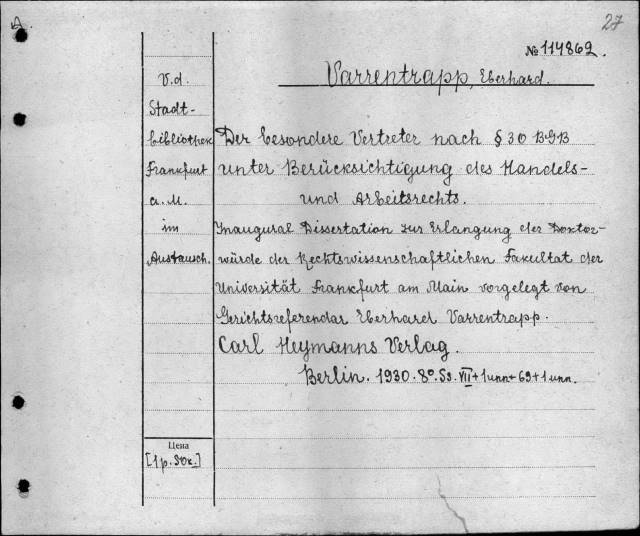 27
№ 114862.
Varrentrapp, Eberhard.
V.d.
Stadt-
bibliothek
Frankfurt
a.M.
im
Austausch.
Der besondere Vertreter nach § 30 BGB
unter Berücksichtigung des Handels-
und Arbeitsrechts.
Inaugural Dissertation zur Erlangung der Doktor-
würde der Rechtswissenschaftlichen Fakultat der
Universität Frankfurt am Main vorgelegt von
Gerichtsreferendar Eberhard Varrentrapp.
Carl Heymanns Verlag.
Berlin. 1930. 8°. Ss. VII+1unn+69+1unn.
Цена
[1р.50к.]